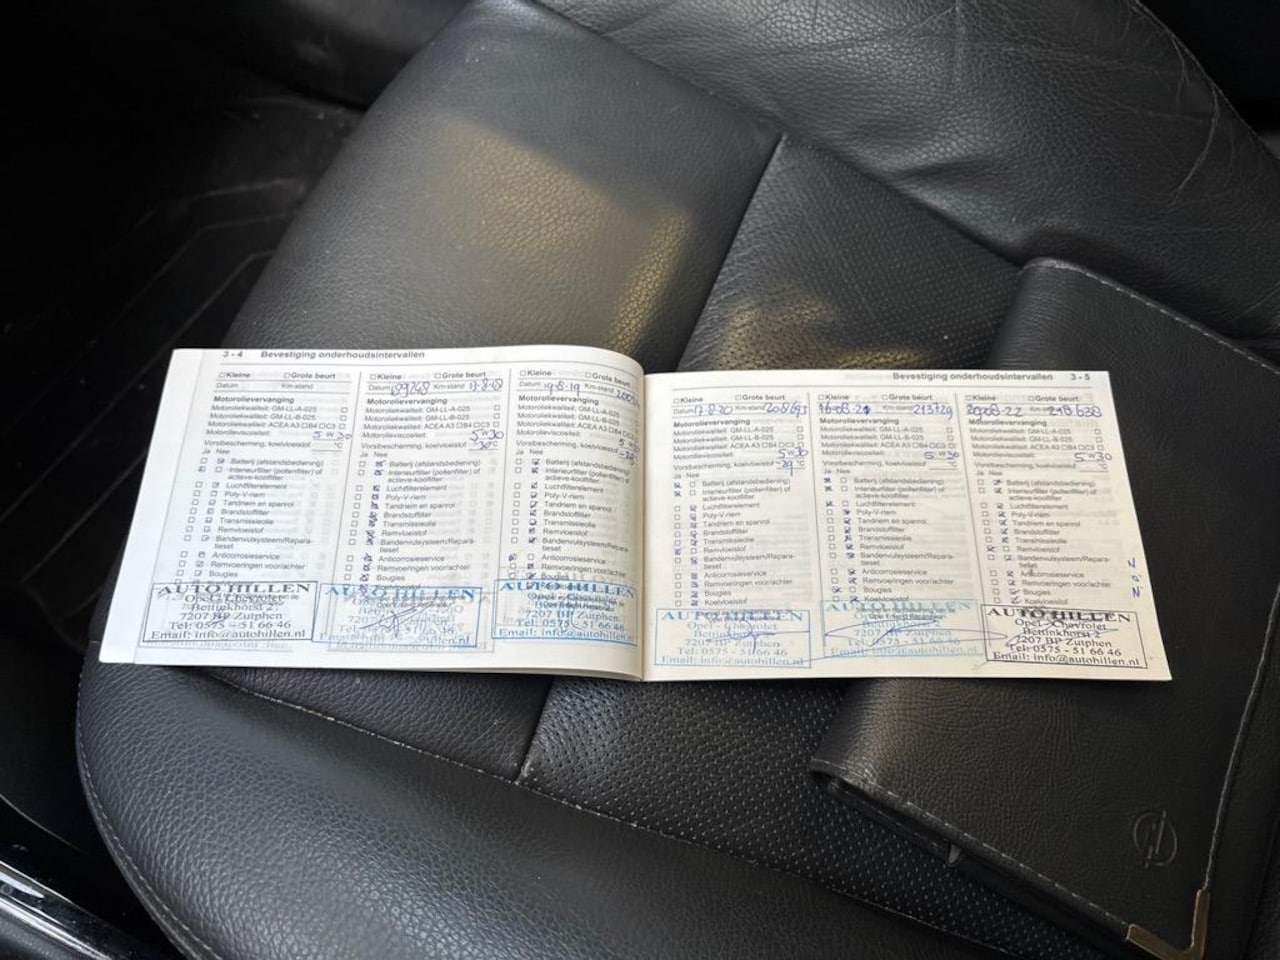 3 - 4 Bevestiging onderhoudsintervallen
Kleine Grote beurt
Datum Km-stand
Motorolievervanging
Motoroliekwaliteit: GM-LL-A-025
Motoroliekwaliteit: GM-LL-B-025
Motoroliekwaliteit: ACEA A3 B4 C3
Motorolieviscositeit: 5 W 30
Vorstbescherming, koelvloeistof °C
Ja Nee
Batterij (afstandsbediening)
Interieurfilter (pollenfilter) of
actieve-koolfilter
Luchtfilterelement
Poly-V-riem
Tandriem en spanrol
Brandstoffilter
Transmissieolie
Remvloeistof
Bandenvulsysteem/Repara-
tieset
Anticorrosieservice
Remvoeringen voor/achter
Bougies
AUTO HILLEN
Opel - Chevrolet
Bettinkhorst 2
7207 BP Zutphen
Tel: 0575 - 51 66 46
Email: info@autohillen.nl
Kleine Grote beurt
Datum Km-stand 17-8-18
Motorolievervanging
Motoroliekwaliteit: GM-LL-A-025
Motoroliekwaliteit: GM-LL-B-025
Motoroliekwaliteit: ACEA A3 B4 C3
Motorolieviscositeit: 5 W 30
Vorstbescherming, koelvloeistof -30 °C
Ja Nee
Batterij (afstandsbediening)
Interieurfilter (pollenfilter) of
actieve-koolfilter
Luchtfilterelement
Poly-V-riem
Tandriem en spanrol
Brandstoffilter
Transmissieolie
Remvloeistof
Bandenvulsysteem/Repara-
tieset
Anticorrosieservice
Remvoeringen voor/achter
Bougies
AUTO HILLEN
Kleine Grote beurt
Datum 19-8-19 Km-stand
Motorolievervanging
Motoroliekwaliteit: GM-LL-A-025
Motoroliekwaliteit: GM-LL-B-025
Motoroliekwaliteit: ACEA A3 B4 C3
Motorolieviscositeit:
Vorstbescherming, koelvloeistof
Ja Nee
Batterij (afstandsbediening)
Interieurfilter (pollenfilter) of
actieve-koolfilter
Luchtfilterelement
Poly-V-riem
Tandriem en spanrol
Brandstoffilter
Transmissieolie
Remvloeistof
Bandenvulsysteem/Repara-
tieset
Anticorrosieservice
Remvoeringen voor/achter
Bougies
AUTO HILLEN
7207 BP Zutphen
Tel: 0575 - 51 66 46
Email: info@autohillen.nl
Bevestiging onderhoudsintervallen 3 - 5
Kleine Grote beurt
Datum 17-8-20 Km-stand 208693
Motorolievervanging
Motoroliekwaliteit: GM-LL-A-025
Motoroliekwaliteit: GM-LL-B-025
Motoroliekwaliteit: ACEA A3 B4 C3
Motorolieviscositeit: 5 W 30
Vorstbescherming, koelvloeistof -29 °C
Ja Nee
Batterij (afstandsbediening)
Interieurfilter (pollenfilter) of
actieve-koolfilter
Luchtfilterelement
Poly-V-riem
Tandriem en spanrol
Brandstoffilter
Transmissieolie
Remvloeistof
Bandenvulsysteem/Repara-
tieset
Anticorrosieservice
Remvoeringen voor/achter
Bougies
Koelvloeistof
AUTO HILLEN
Opel - Chevrolet
Bettinkhorst 2
7207 BP Zutphen
Tel: 0575 - 51 66 46
Email: info@autohillen.nl
Kleine Grote beurt
16-08-21 Km-stand 213729
Motorolievervanging
Motoroliekwaliteit: GM-LL-A-025
Motoroliekwaliteit: GM-LL-B-025
Motoroliekwaliteit: ACEA A3 B4 C3
Motorolieviscositeit: 5 W 30
Vorstbescherming, koelvloeistof °C
Ja Nee
Batterij (afstandsbediening)
Interieurfilter (pollenfilter) of
actieve-koolfilter
Luchtfilterelement
Poly-V-riem
Tandriem en spanrol
Brandstoffilter
Transmissieolie
Remvloeistof
Bandenvulsysteem/Repara-
tieset
Anticorrosieservice
Remvoeringen voor/achter
Bougies
Koelvloeistof
AUTO HILLEN
7207 BP Zutphen
Tel: 0575 - 51 66 46
Email: info@autohillen.nl
Kleine Grote beurt
Km-stand 218.638
Motorolievervanging
Motoroliekwaliteit: GM-LL-A-025
Motoroliekwaliteit: GM-LL-B-025
Motoroliekwaliteit: ACEA A3 B4 C3
Motorolieviscositeit: 5 W 30
Vorstbescherming, koelvloeistof °C
Ja Nee
Batterij (afstandsbediening)
Interieurfilter (pollenfilter) of
actieve-koolfilter
Luchtfilterelement
Poly-V-riem
Tandriem en spanrol
Brandstoffilter
Transmissieolie
Remvloeistof
Bandenvulsysteem/Repara-
tieset
Anticorrosieservice
Remvoeringen voor/achter
Bougies
Koelvloeistof
AUTO HILLEN
Opel - Chevrolet
Bettinkhorst 2
7207 BP Zutphen
Tel: 0575 - 51 66 46
Email: info@autohillen.nl